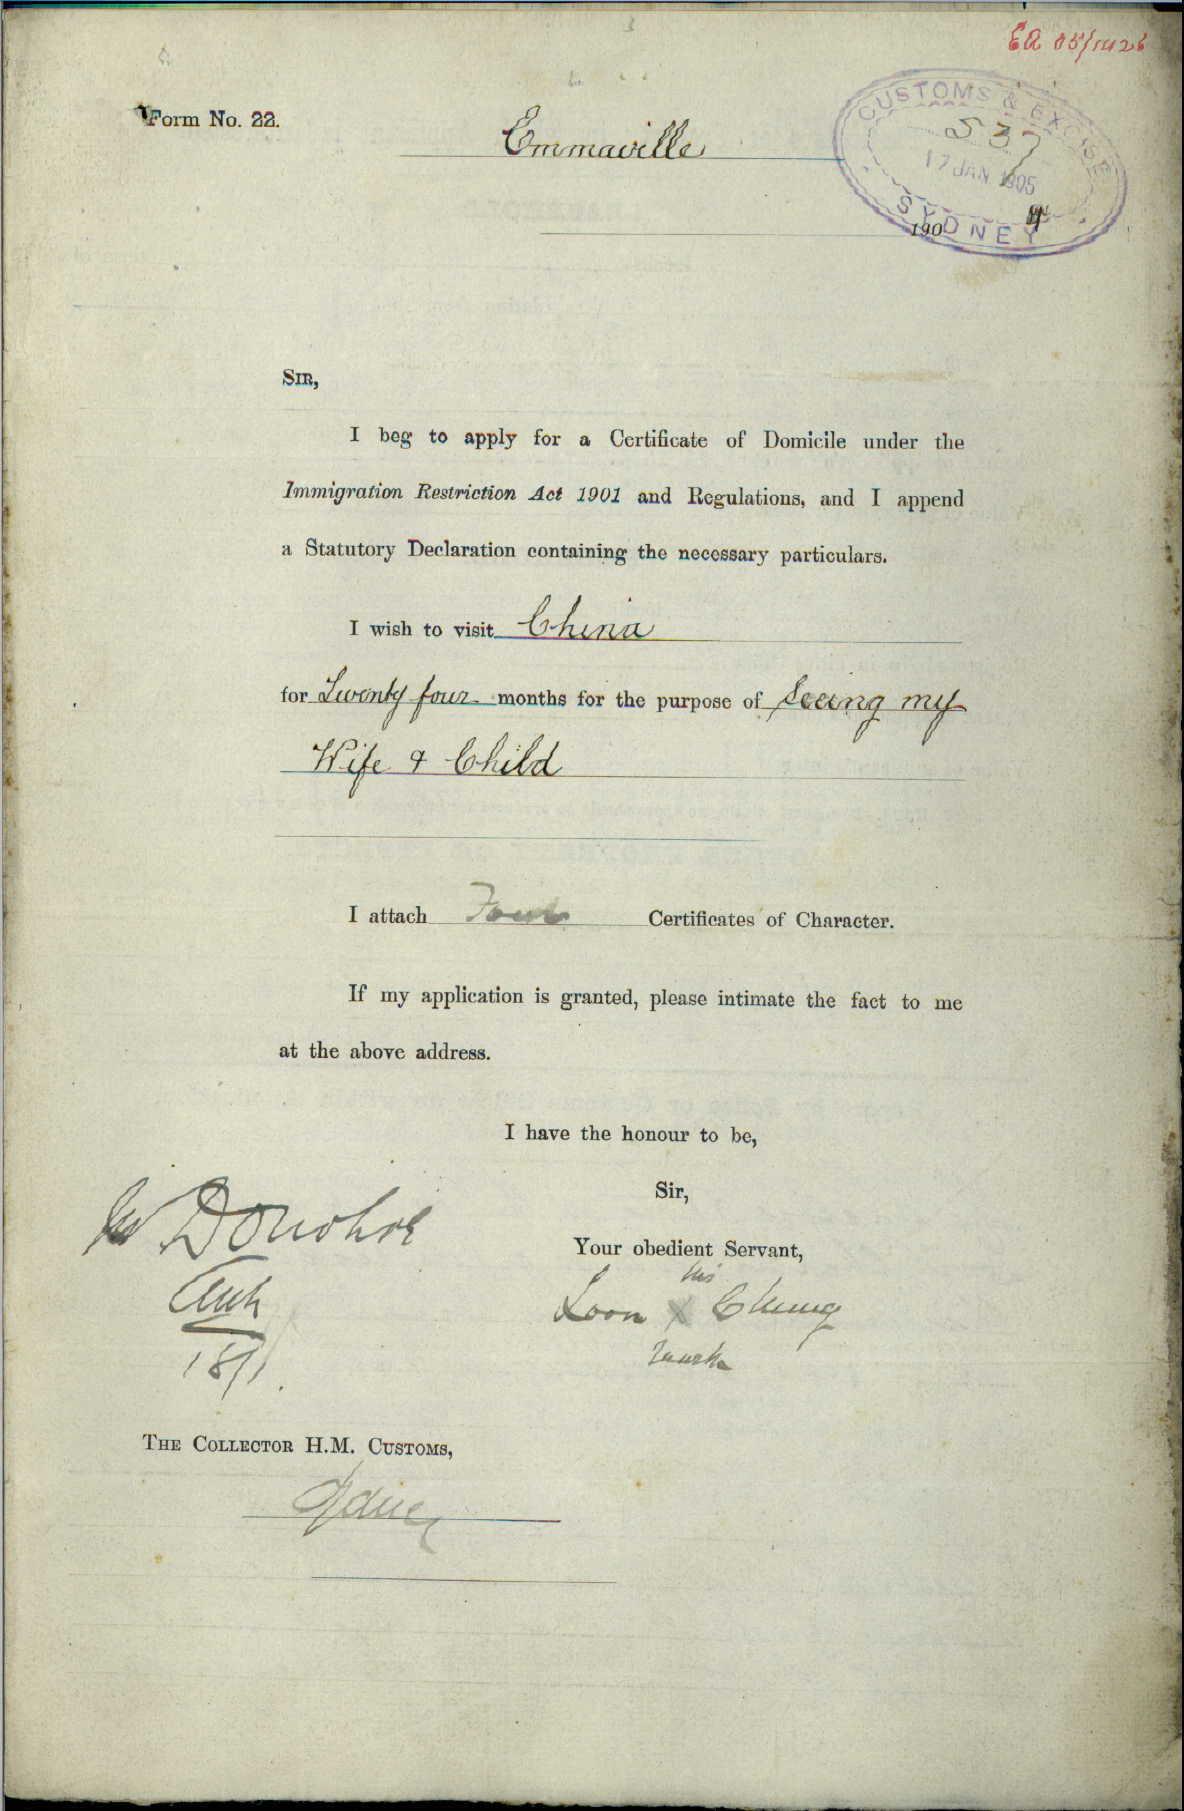 Form No. 22.
Emmaville
CUSTOMS & EXCISE
537
17 JAN 1905
SYDNEY
190
SIR,
I beg to apply for a Certificate of Domicile under the
Immigration Restriction Act 1901 and Regulations, and I append
a Statutory Declaration containing the necessary particulars.
I wish to visit China
for Twenty four months for the purpose of Seeing my
Wife & Child
I attach Four Certificates of Character.
If my application is granted, please intimate the fact to me
at the above address.
I have the honour to be,
Sir,
Your obedient Servant,
his
Loon X Chung
mark
Donohoe
18/1
THE COLLECTOR H.M. CUSTOMS,
Sydney